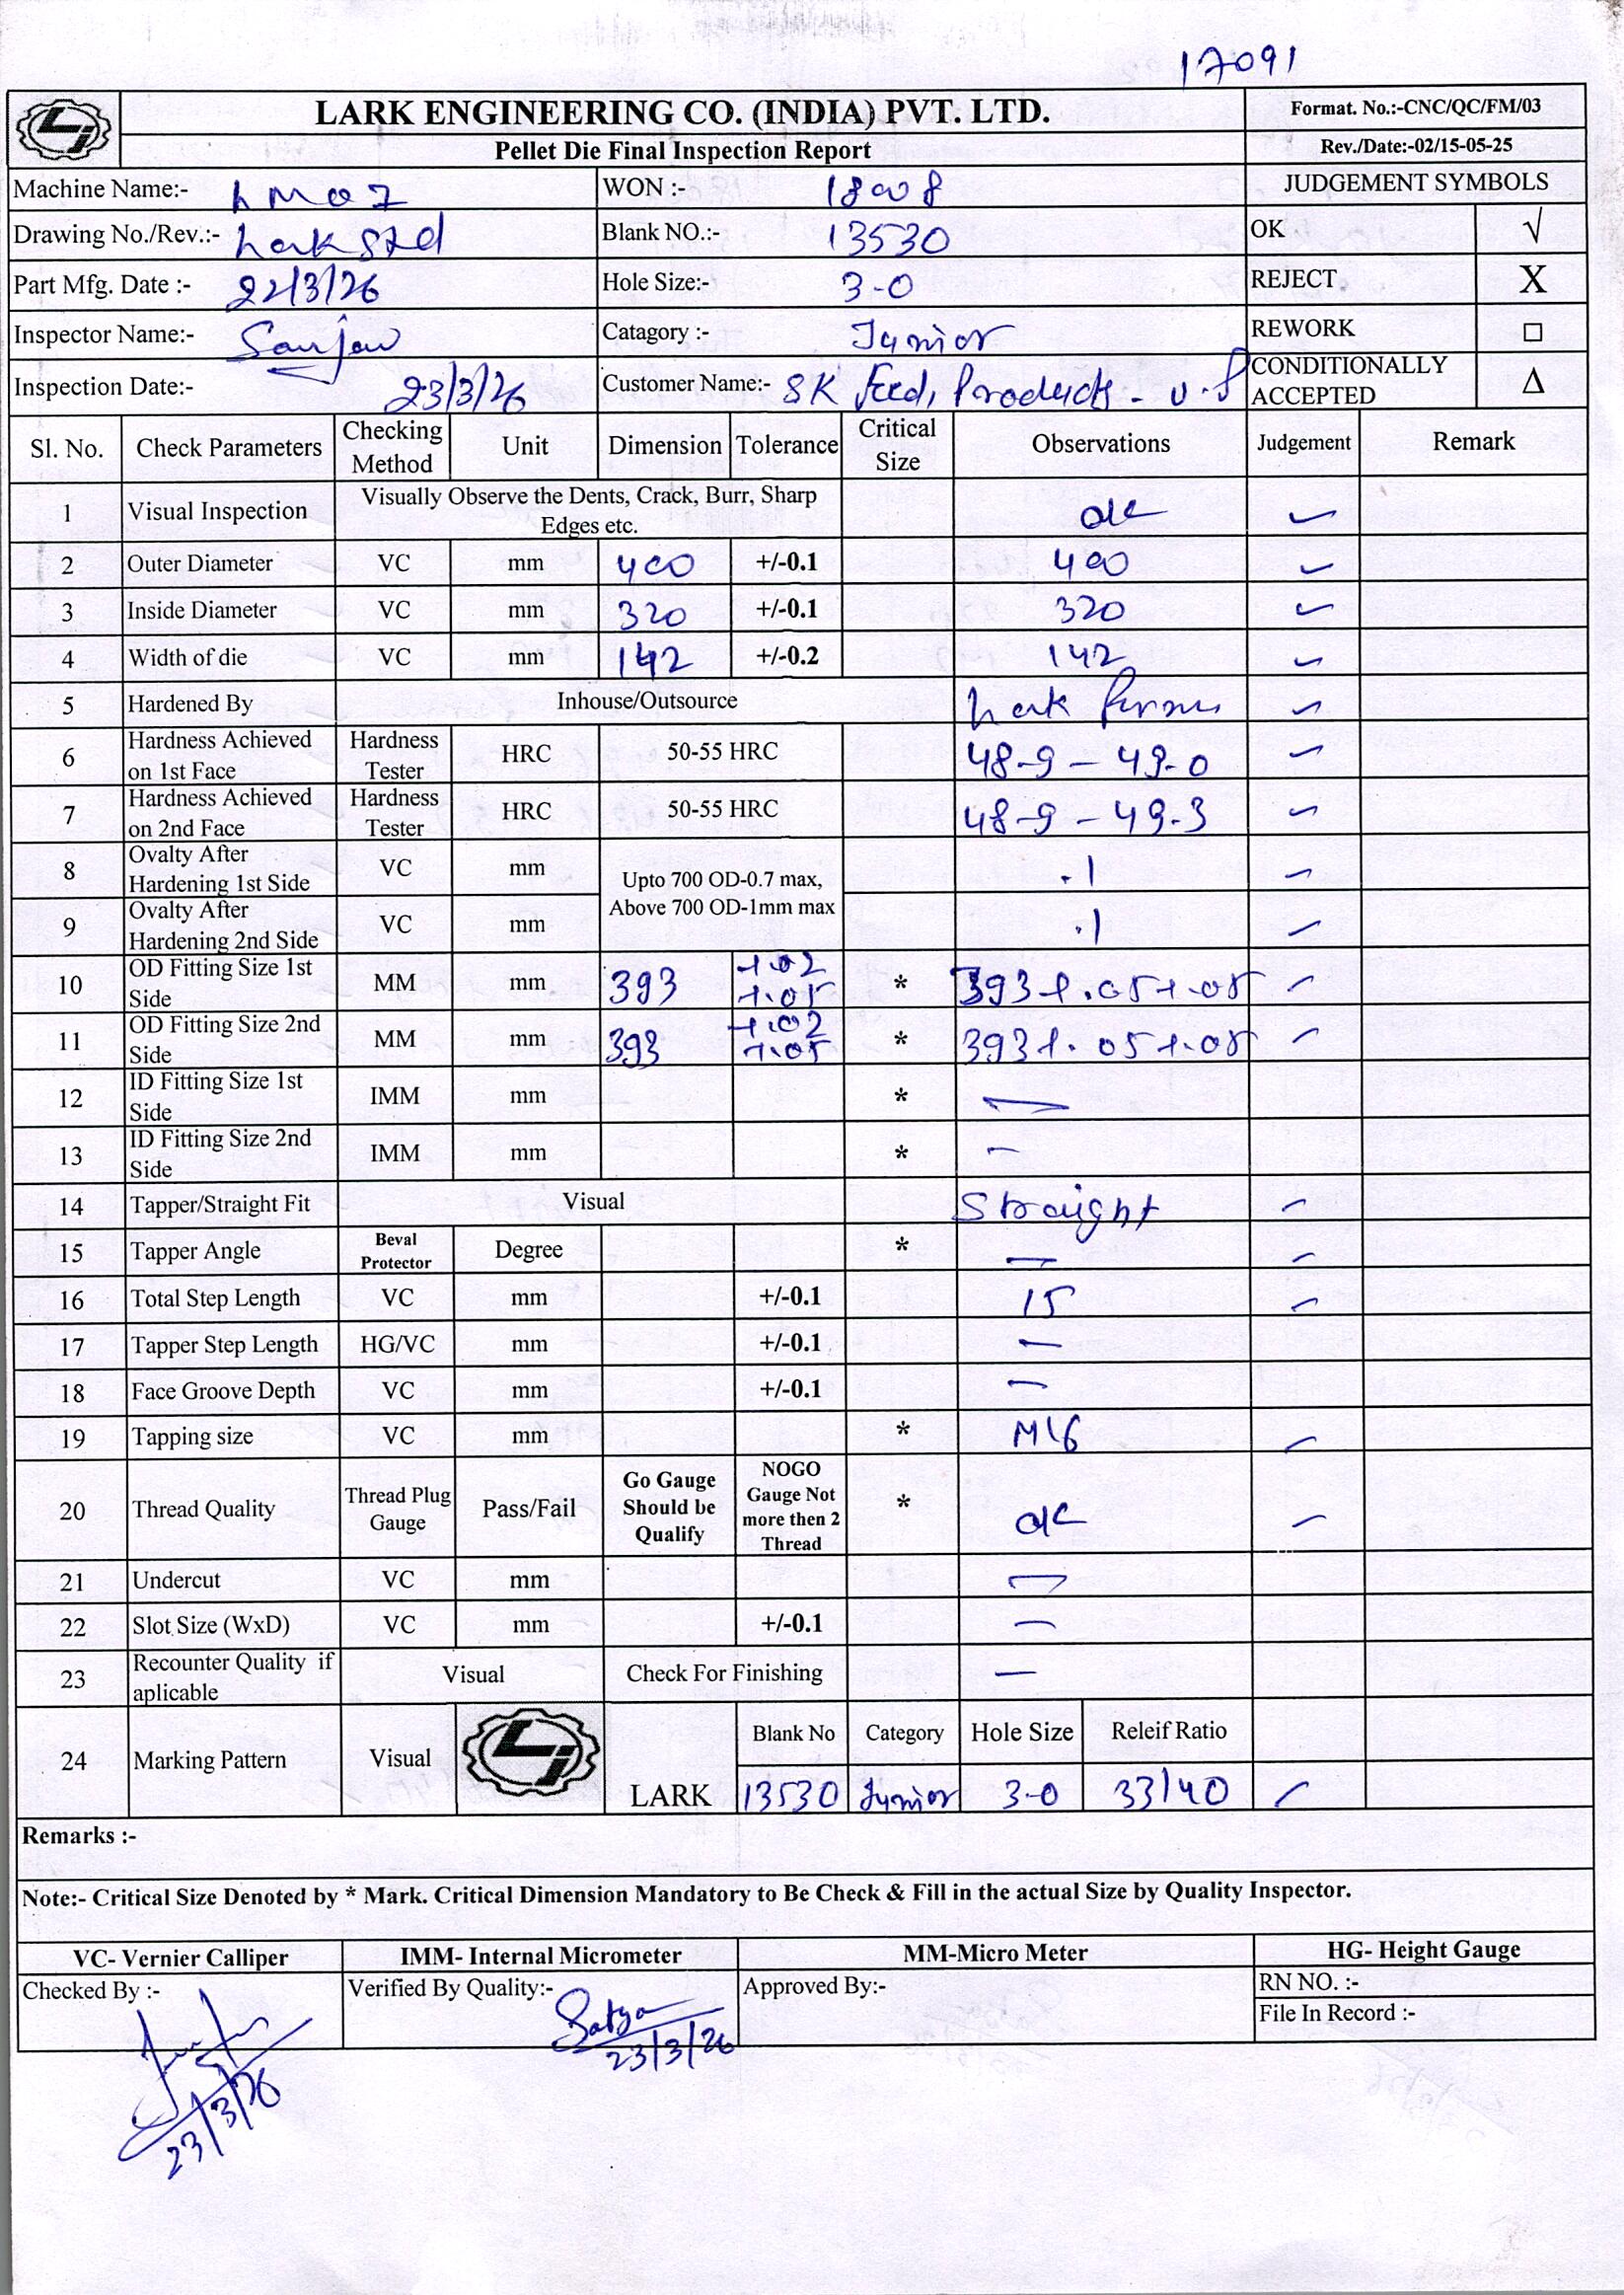 17091
LARK ENGINEERING CO. (INDIA) PVT. LTD.
Format. No.:-CNC/QC/FM/03
Pellet Die Final Inspection Report
Rev./Date:-02/15-05-25
Machine Name:-
WON :- 18008
JUDGEMENT SYMBOLS
Drawing No./Rev.:- Lark Std
Blank NO.:- 13530
OK √
Part Mfg. Date :- 22/3/26
Hole Size:- 3-0
REJECT X
Inspector Name:- Sanjav
Catagory :- Junior
REWORK □
Inspection Date:- 23/3/26
Customer Name:- SK Feed, Products - U.P
CONDITIONALLY ACCEPTED Δ
Sl. No. Check Parameters Checking Method Unit Dimension Tolerance Critical Size Observations Judgement Remark
1 Visual Inspection Visually Observe the Dents, Crack, Burr, Sharp Edges etc. ok ✓
2 Outer Diameter VC mm 400 +/-0.1 400 ✓
3 Inside Diameter VC mm 320 +/-0.1 320 ✓
4 Width of die VC mm 142 +/-0.2 142 ✓
5 Hardened By Inhouse/Outsource Lark ✓
6 Hardness Achieved on 1st Face Hardness Tester HRC 50-55 HRC 48-9 – 49-0 ✓
7 Hardness Achieved on 2nd Face Hardness Tester HRC 50-55 HRC 48-9 – 49-3 ✓
8 Ovalty After Hardening 1st Side VC mm Upto 700 OD-0.7 max, Above 700 OD-1mm max .1 ✓
9 Ovalty After Hardening 2nd Side VC mm .1 ✓
10 OD Fitting Size 1st Side MM mm 393 +.02 +.05 * 393+.05+.05 ✓
11 OD Fitting Size 2nd Side MM mm 393 +.02 +.05 * 393+.05+.05 ✓
12 ID Fitting Size 1st Side IMM mm * —
13 ID Fitting Size 2nd Side IMM mm * —
14 Tapper/Straight Fit Visual Straight ✓
15 Tapper Angle Beval Protector Degree * — ✓
16 Total Step Length VC mm +/-0.1 15 ✓
17 Tapper Step Length HG/VC mm +/-0.1 —
18 Face Groove Depth VC mm +/-0.1 —
19 Tapping size VC mm * M16 ✓
20 Thread Quality Thread Plug Gauge Pass/Fail Go Gauge Should be Qualify NOGO Gauge Not more then 2 Thread * ok ✓
21 Undercut VC mm —
22 Slot Size (WxD) VC mm +/-0.1 —
23 Recounter Quality if aplicable Visual Check For Finishing —
24 Marking Pattern Visual LARK Blank No Category Hole Size Releif Ratio
13530 Junior 3-0 33/40 ✓
Remarks :-
Note:- Critical Size Denoted by * Mark. Critical Dimension Mandatory to Be Check & Fill in the actual Size by Quality Inspector.
VC- Vernier Calliper IMM- Internal Micrometer MM-Micro Meter HG- Height Gauge
Checked By :- Verified By Quality:- Approved By:- RN NO. :-
File In Record :-
Satya
23/3/26
23/3/26